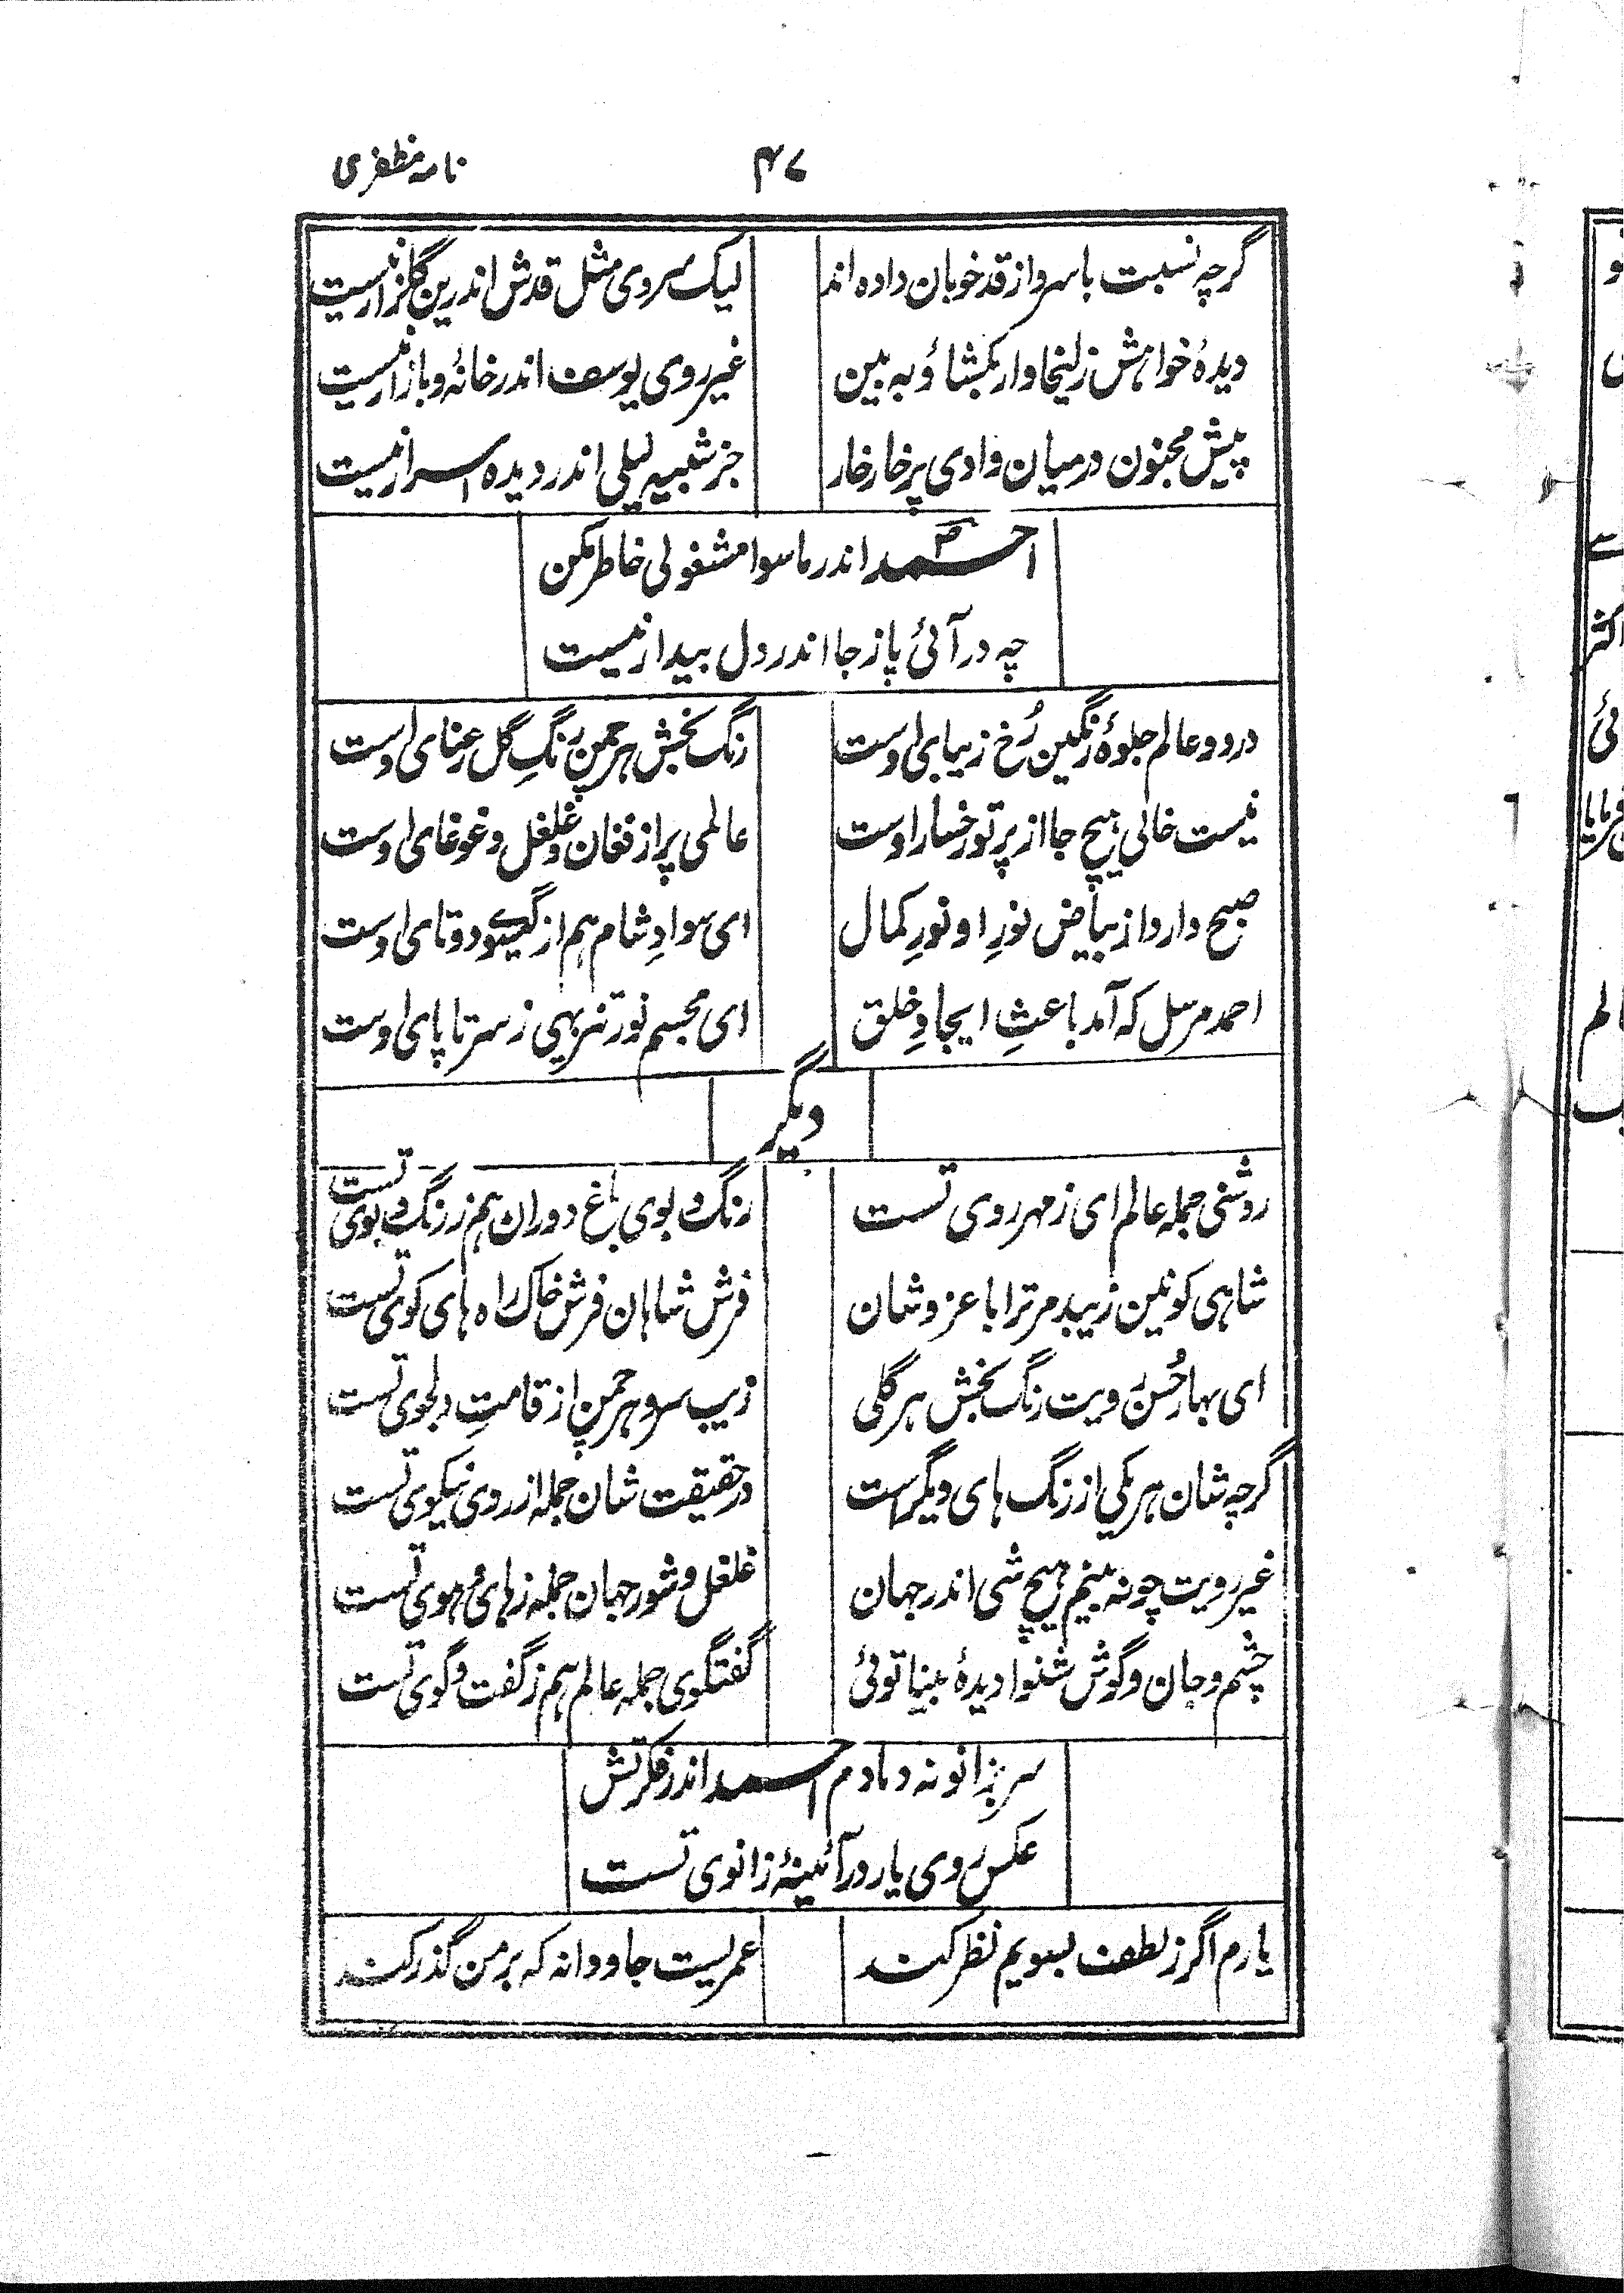 ۴۷
نامہ مظفری
گرچہ نسبت با سرو از قد خوبان داده اند
لیک سروی مثل قدش اندرین گلزار نیست
دیدۂ خواہش زلیخا وار بکشاؤ بہ بین
غیر روی یوسف اندر خانۂ و بازار نیست
پیش مجنون درمیان وادی پر خار خار
جز شبیہ لیلی اندر دیدہ اسرار نیست
احمد اندر ماسوا مشغولی خاطر مکن
چہ در آئی پا ز جا اندر دل بیدار نیست
در دو عالم جلوۂ رنگین رُخ زیبای اوست
رنگ بخش ہر چمن رنگِ گل رعنای اوست
نیست خالی ہیچ جا از پرتو رخسار اوست
عالمی پر از فغان و غلغل و غوغای اوست
صبح دارد از بیاض نورِ او نورِ کمال
ای سوادِ شام ہم از گیسو دوتای اوست
احمد مرسل کہ آمد باعثِ ایجادِ خلق
ای مجسم نور تنزیہی ز سر تا پای اوست
دیگر
روشنی جملہ عالم ای ز مہر روی تست
رنگ و بوی باغ دوران ہم ز رنگ و بوی تست
شاہی کونین زیبد مر ترا با عز و شان
فرش شاہان فرش خاک راہ ہای کوی تست
ای بہار حُسن رویت رنگ بخش ہر گلی
زیب سرو ہر چمن از قامتِ دلجوی تست
گرچہ شان ہر یکی از رنگ ہای دیگر است
در حقیقت شان جملہ از روی نیکوی تست
غیر رویت چو نہ بینم ہیچ شی اندر جہان
غلغل و شور جہان جملہ ز ہای و ہوی تست
چشم و جان و گوش شنوا دیدۂ بینا توئی
گفتگوی جملہ عالم ہم ز گفت و گوی تست
سر بزانو نہ دمادم احمد اندر فکرتش
عکس روی یار در آئینۂ زانوی تست
یارم اگر ز لطف بسویم نظر کند
عمریست جاودانہ کہ بر من گذر کند